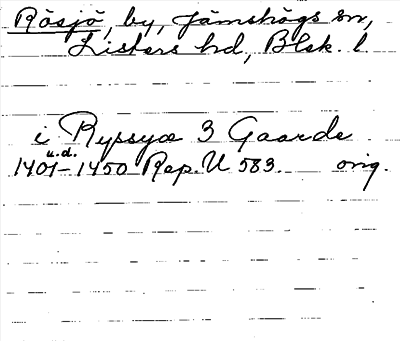 Rösjö, by, Jämshögs sn,
Listers hd, Blek. l
i Ryssyø 3 Gaarde
u.d.
1401-1450 Rep. U 583. orig.